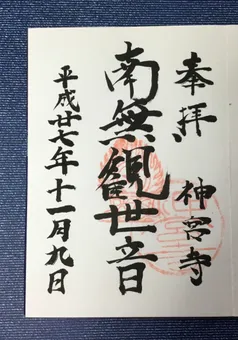 奉拝 神宮寺
南無観世音
平成廿七年十一月九日